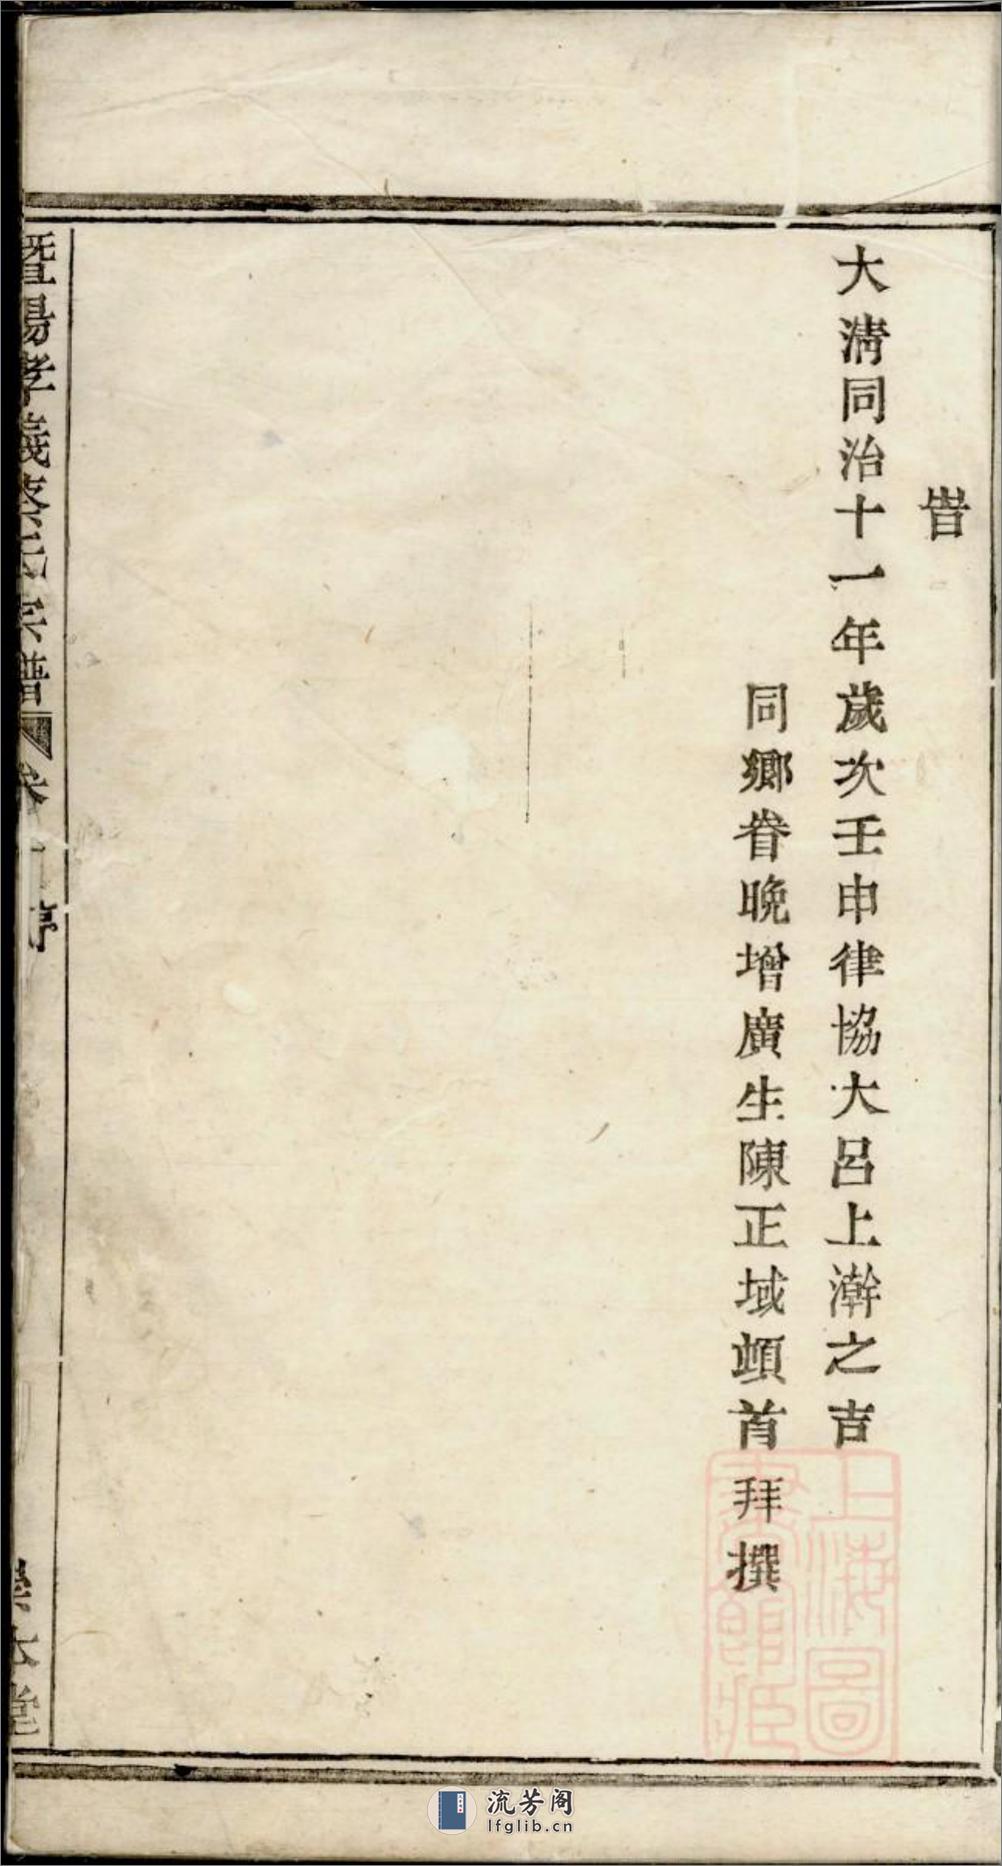 旹
大淸同治十一年歲次壬申律協大呂上澣之吉
同鄉眷晚增廣生陳正域頓首拜撰
暨陽孝義蔡氏宗譜 卷 序
崇本堂
上海圖
書館藏
流芳阁
lfglib.cn